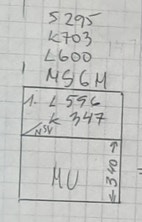 S295
K703
L600
MSGM
1. L596
K 347
NSV
MU
340